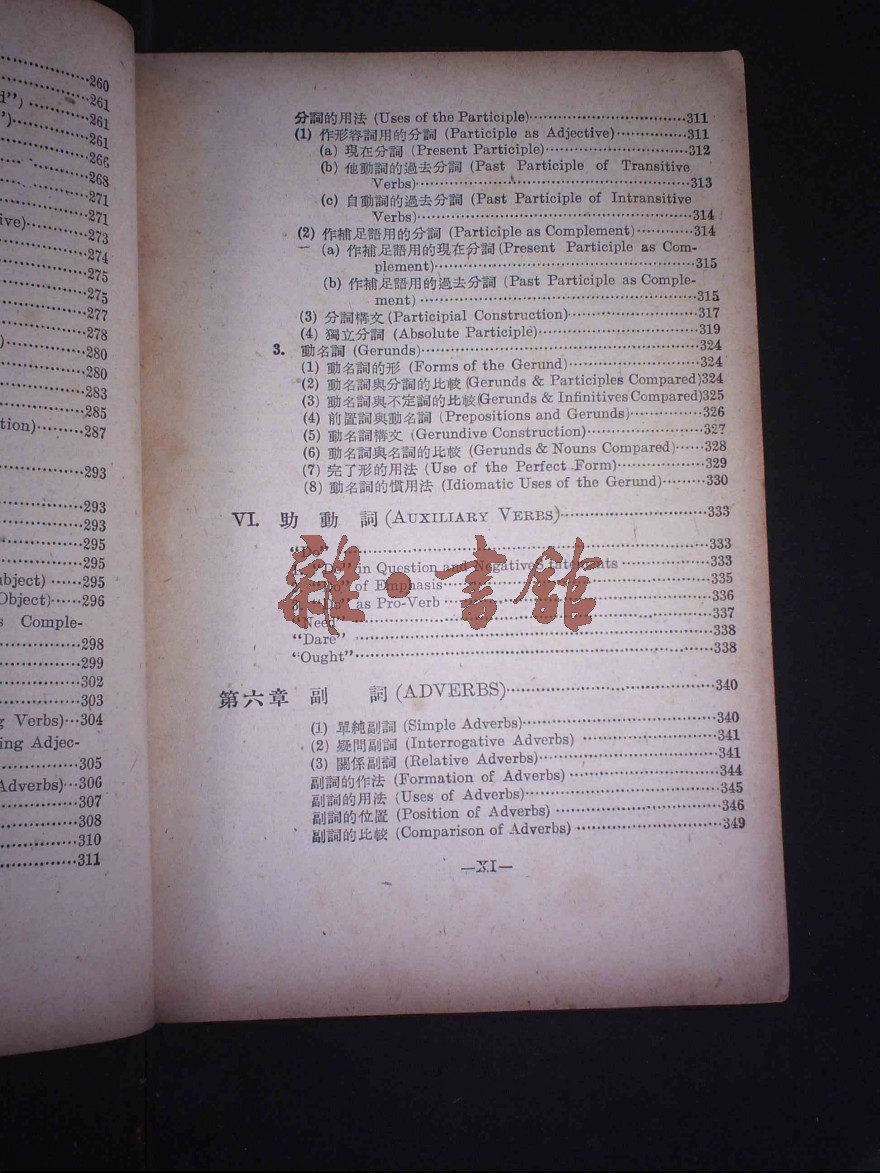 260
261
261
261
266
268
271
271
ive)··········273
274
275
275
277
278
)··········280
280
283
285
tion)·········287
293
293
293
295
295
ubject) ······295
Object)······296
s Comple-
298
299
302
303
g Verbs)···304
ing Adjec-
305
Adverbs)···306
307
308
310
311
分詞的用法 (Uses of the Participle)······························311
(1) 作形容詞用的分詞 (Participle as Adjective)·············311
(a) 現在分詞 (Present Participle)··························312
(b) 他動詞的過去分詞 (Past Participle of Transitive
Verbs)··················································313
(c) 自動詞的過去分詞 (Past Participle of Intransitive
Verbs)··················································314
(2) 作補足語用的分詞 (Participle as Complement)··········314
(a) 作補足語用的現在分詞(Present Participle as Com-
plement)················································315
(b) 作補足語用的過去分詞 (Past Participle as Comple-
ment) ··················································315
(3) 分詞構文 (Participial Construction)·······················317
(4) 獨立分詞 (Absolute Participle)····························319
3. 動名詞 (Gerunds)··················································324
(1) 動名詞的形 (Forms of the Gerund)·······················324
(2) 動名詞與分詞的比較 (Gerunds & Participles Compared)324
(3) 動名詞與不定詞的比較(Gerunds & Infinitives Compared)325
(4) 前置詞與動名詞 (Prepositions and Gerunds)·············326
(5) 動名詞構文 (Gerundive Construction)·····················327
(6) 動名詞與名詞的比較 (Gerunds & Nouns Compared)······328
(7) 完了形的用法 (Use of the Perfect Form)················329
(8) 動名詞的慣用法 (Idiomatic Uses of the Gerund)·········330
VI. 助動詞 (AUXILIARY VERBS)····························333
"Do" ··································································333
"Do" in Question and Negative Statements ················333
"Do" of Emphasis·················································335
3. "Do" as Pro-Verb ················································336
"Need" ·······························································337
"Dare" ·······························································338
"Ought"······························································338
第六章 副詞 (ADVERBS)·········································340
(1) 單純副詞 (Simple Adverbs)·····································340
(2) 疑問副詞 (Interrogative Adverbs) ··························341
(3) 關係副詞 (Relative Adverbs)··································341
副詞的作法 (Formation of Adverbs) ·····························344
副詞的用法 (Uses of Adverbs)·····································345
副詞的位置 (Position of Adverbs) ································346
副詞的比較 (Comparison of Adverbs) ····························349
—XI—
雜·書館